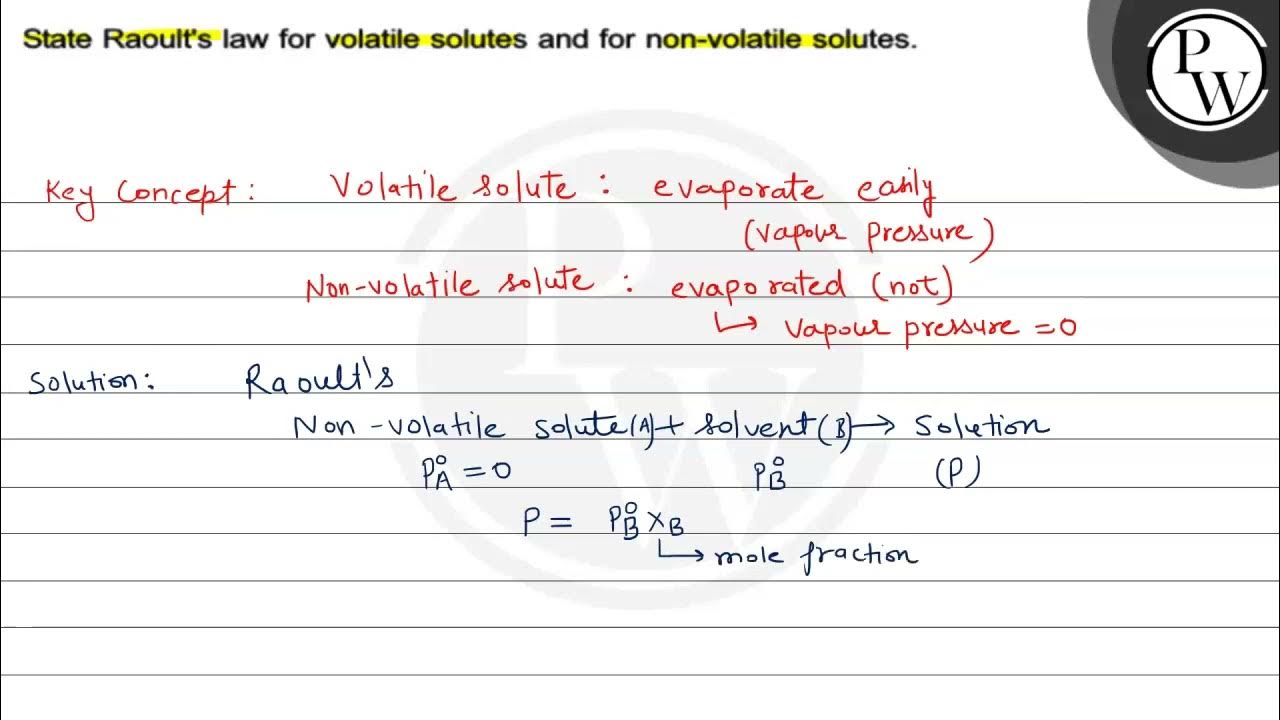 State Raoult's law for volatile solutes and for non-volatile solutes.
PW
Key Concept: Volatile solute : evaporate easily
(vapour pressure)
Non-volatile solute : evaporated (not)
↳ vapour pressure = 0
Solution: Raoult's
Non-volatile solute(A)+ solvent(B)→ Solution
P°A = 0 P°B (P)
P = P°B XB
↳ mole fraction